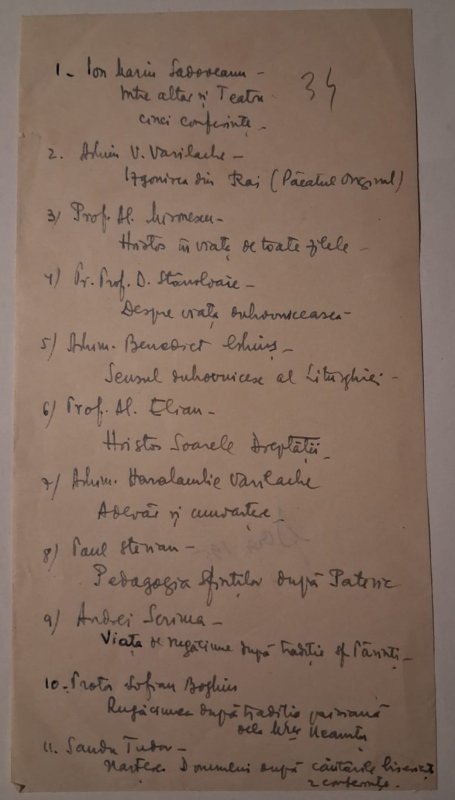 1- Ion Marin Sadoveanu -
34
Între altar și Teatru
cinci conferințe -
2. Arhim V. Vasilache -
Izgonirea din Rai (Păcatul Original)
3/ Prof. Al. Mironescu -
Hristos în viața de toate zilele -
4/ Pr. Prof. D. Stăniloaie -
Despre viața duhovnicească -
5/ Arhim. Benedict Ghiuș -
Sensul duhovnicesc al Liturghiei -
6/ Prof. Al. Elian -
Hristos Soarele Dreptății -
7/ Arhim. Haralambie Vasilache
Adevăr și cunoaștere
8/ Paul Sterian -
Pedagogia Sfinților după Pateric
9/ Andrei Scrima -
Viața de rugăciune după tradiție sf Părinți -
10. Protos Sofian Boghiu
Rugăciunea după tradiția paisiană
dela Neamțu
11. Sandu Tudor -
Nașterea Domnului după cântările bisericești
2 conferințe.